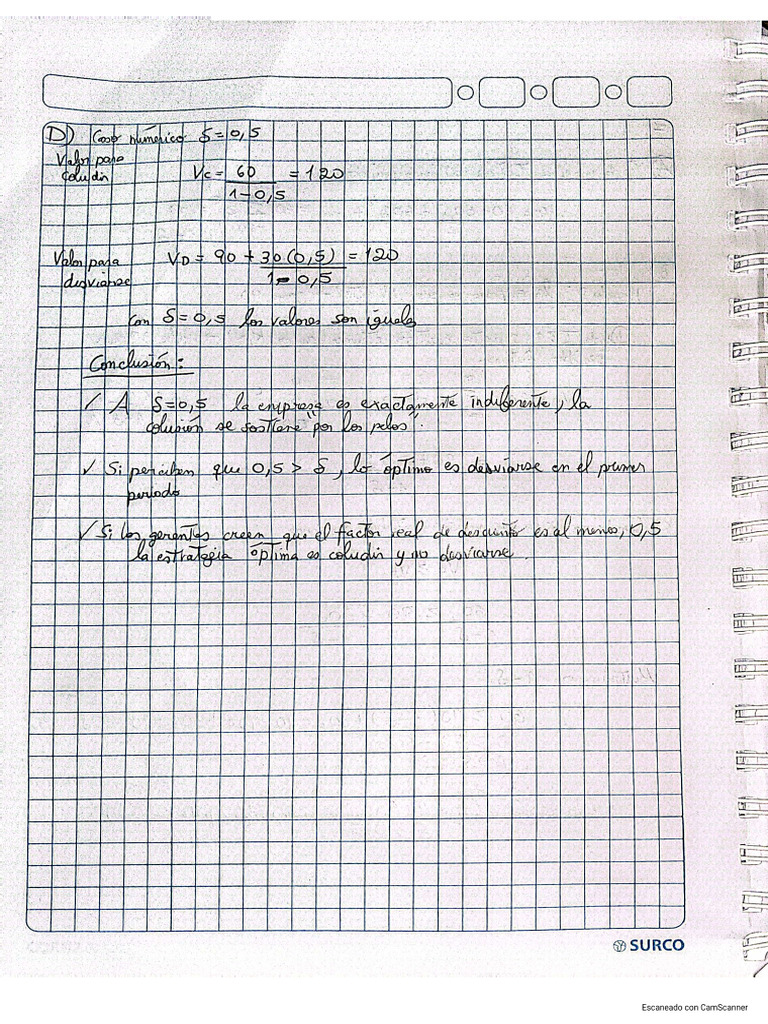 D) Caso numérico δ = 0,5
Valor para
coludir
Vc = 60 = 120
1 - 0,5
Valor para
desviarse
VD = 90 + 30(0,5) = 120
1 - 0,5
con δ = 0,5 los valores son iguales
Conclusión:
✓ A δ=0,5 la empresa es exactamente indiferente, la
colusión se sostiene "por los pelos".
✓ Si perciben que 0,5 > δ, lo óptimo es desviarse en el primer
periodo
✓ Si los gerentes creen que el factor real de descuento es al menos, 0,5
la estrategia óptima es coludir y no desviarse.
SURCO
Escaneado con CamScanner